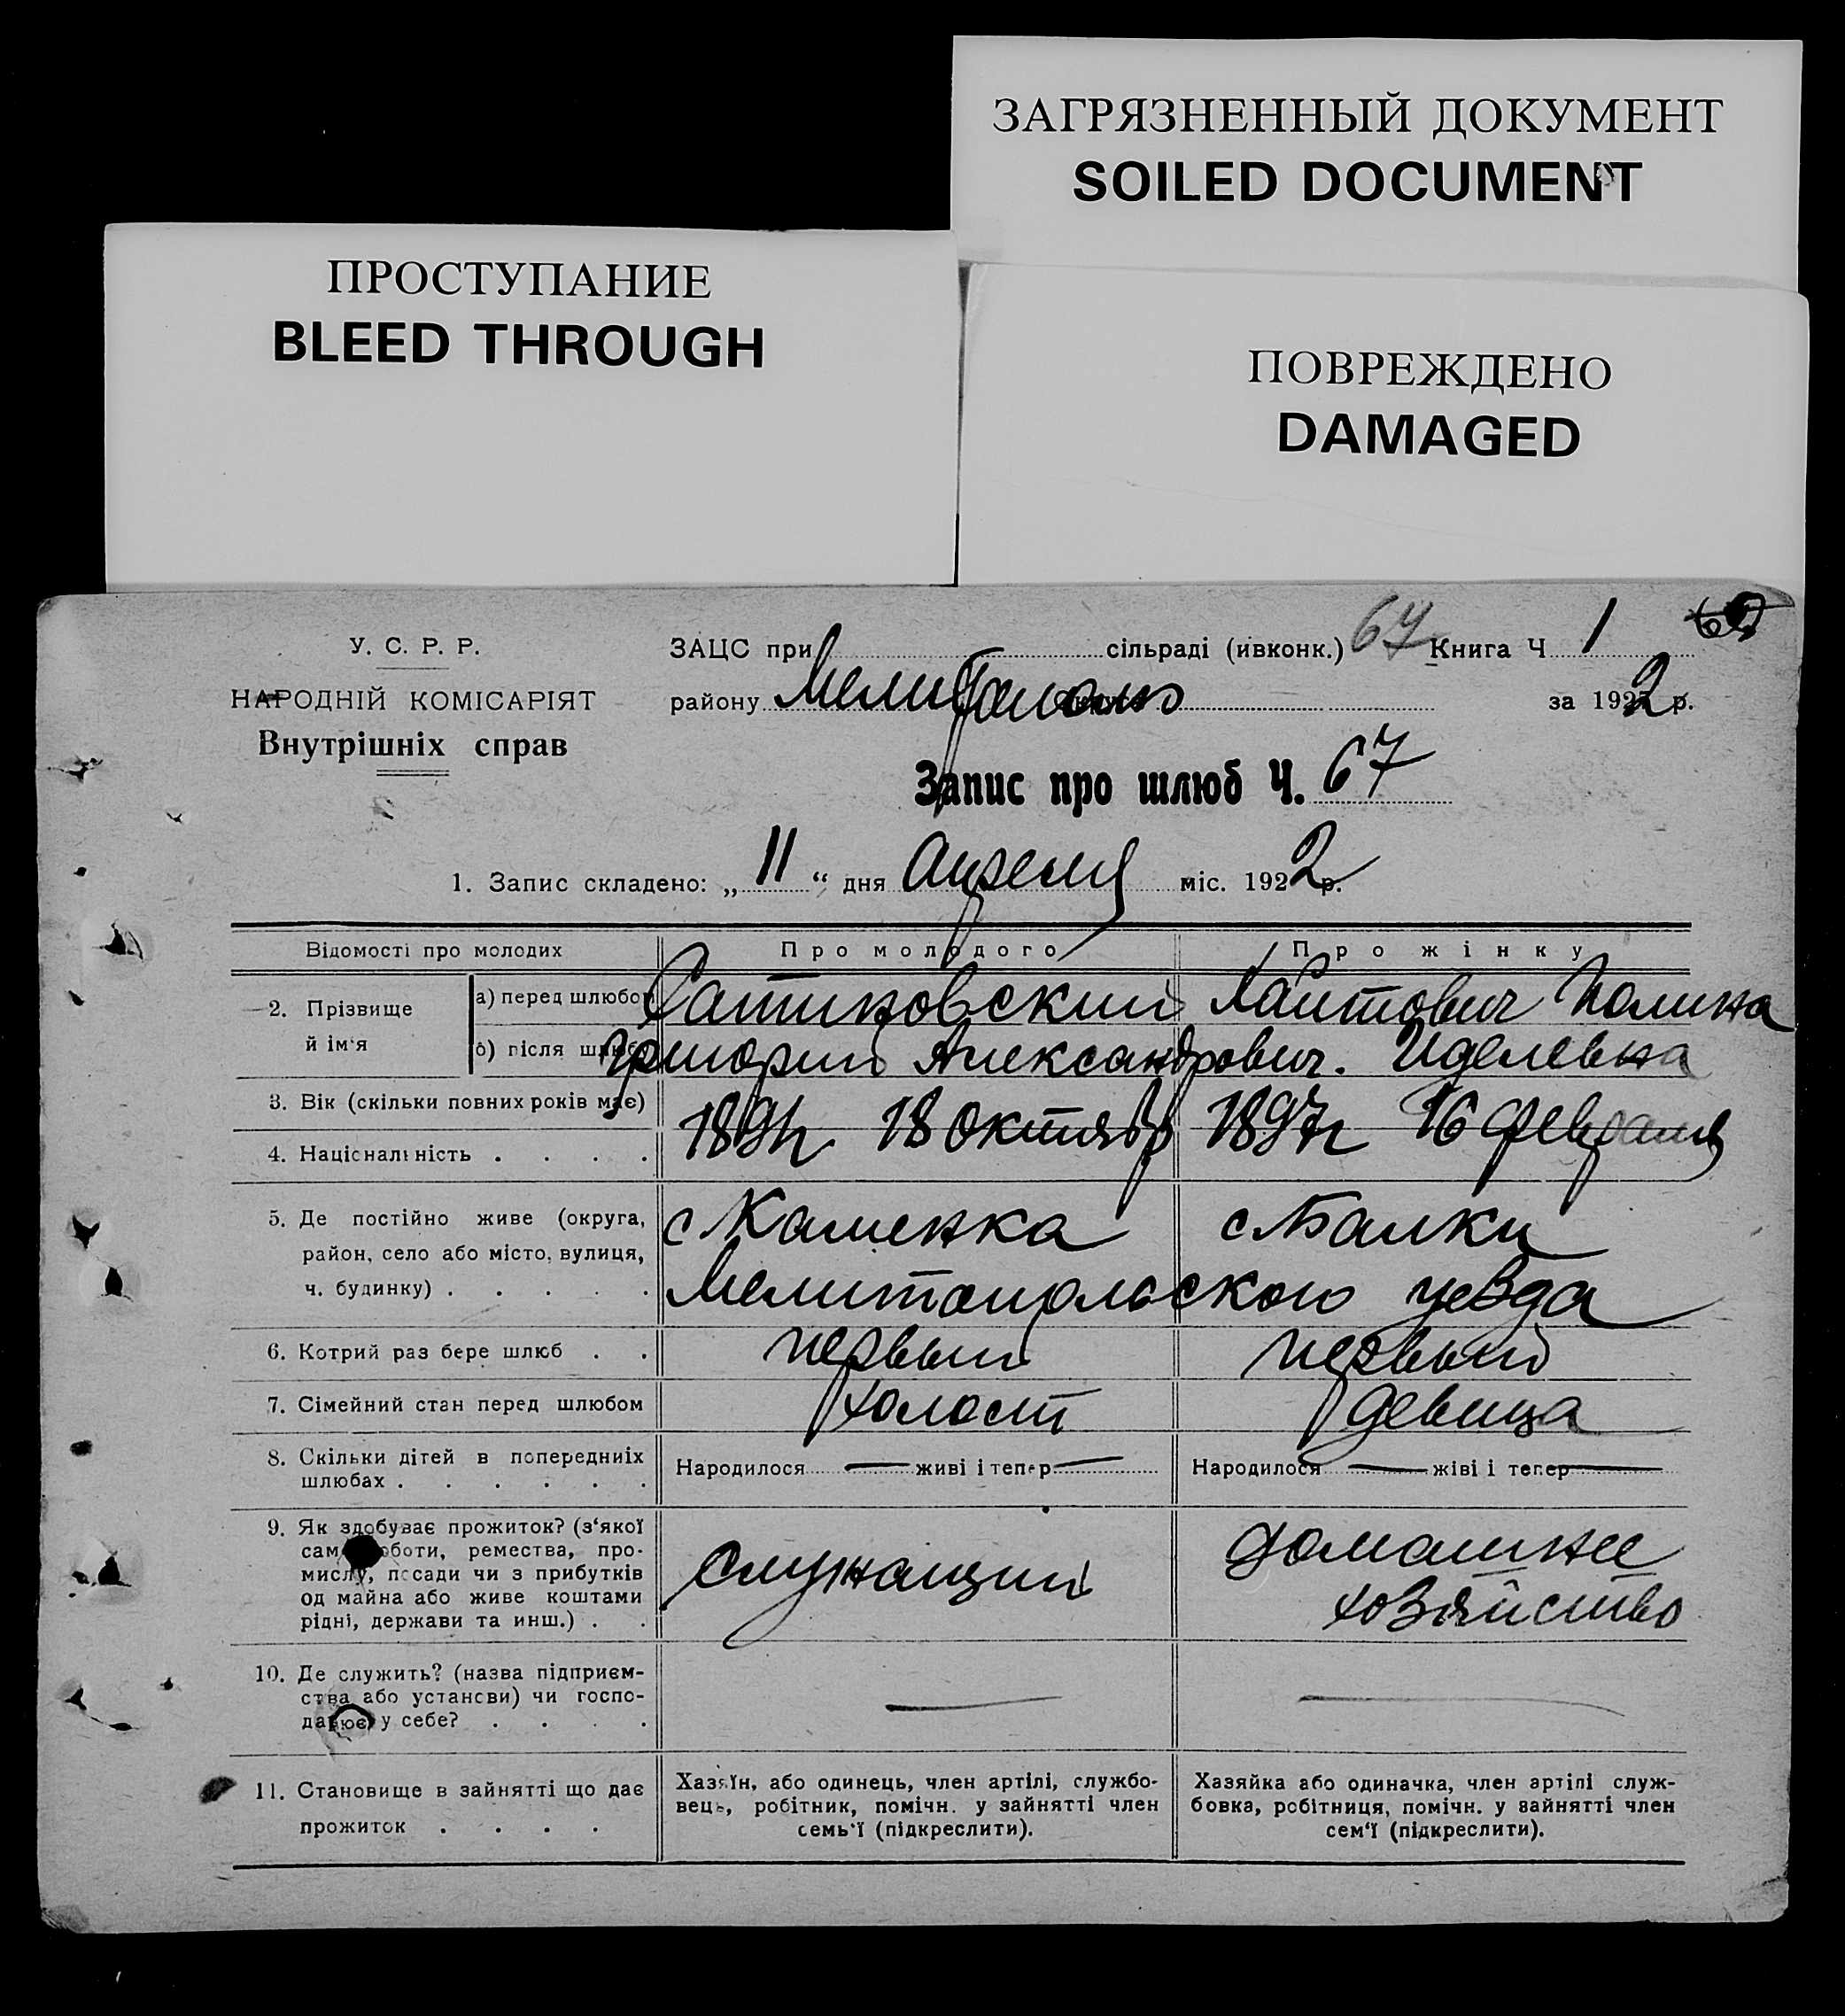 ЗАГРЯЗНЕННЫЙ ДОКУМЕНТ
SOILED DOCUMENT
ПРОСТУПАНИЕ
BLEED THROUGH
ПОВРЕЖДЕНО
DAMAGED
У. С. Р. Р.
НАРОДНІЙ КОМІСАРІЯТ
Внутрішніх справ
ЗАЦС при сільраді (ивконк.) 67 Книга Ч 1
району Мелитополь за 1922 р.
Запис про шлюб Ч. 67
1. Запис складено: „ 11 “ дня апреля міс. 1922 р.
Відомості про молодих Про молодого Про жінку
2. Прізвище й ім'я
а) перед шлюбом Сатановский Хаитович Полина
б) після шлюбу Григорий Александрович. Иделевна
3. Вік (скільки повних років має)
189 г. 18 октября 1897 г 16 февраля
4. Національність . . . .
5. Де постійно живе (округа,
район, село або місто, вулиця,
ч. будинку) . . . . .
с Каменка с Балки
Мелитопольского уезда
6. Котрий раз бере шлюб . . первый первый
7. Сімейний стан перед шлюбом холост девица
8. Скільки дітей в попередниіх
шлюбах . . . . . .
Народилося — живі і тепер — Народилося — жіві і тепер —
9. Як здобуває прожиток? (з‘якої
сам роботи, ремества, про-
мислу, посади чи з прибутків
од майна або живе коштами
рідні, держави та инш.) . .
служащий домашнее
хозяйство
10. Де служить? (назва підприєм-
ства або установи) чи госпо-
дарює у себе? . . . .
— —
11. Становище в зайнятті що дає
прожиток . . . .
Хазяїн, або одинець, член артілі, службо-
вець, робітник, помічн. у зайнятті член
семь'ї (підкреслити).
Хазяйка або одиначка, член артілі служ-
бовка, робітниця, помічн. у зайнятті член
сем'ї (підкреслити).